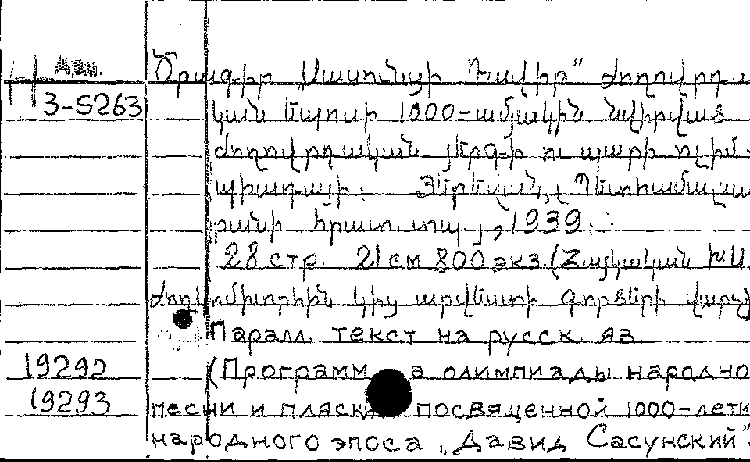 Арм.
3-5263
Ծրագիր „Սասունցի Դավիթ“ ժողովրդա
կան էպոսի 1000-ամյակին նվիրված
ժողովրդական յերգ-ի ու պարի օլիմ
պիադայի. Յերևան, Պետհամալսա
րանի հրատ. տպ., 1939.
28 стр. 21 см 800 экз. (Հայկական ԽՍ
կից արվեստի գործերի վարչ
Паралл. текст на русск. яз
19292 (Программа олимпиады народно
19293 песни и пляски посвященной 1000-лети
народного эпоса „Давид Сасунский”.